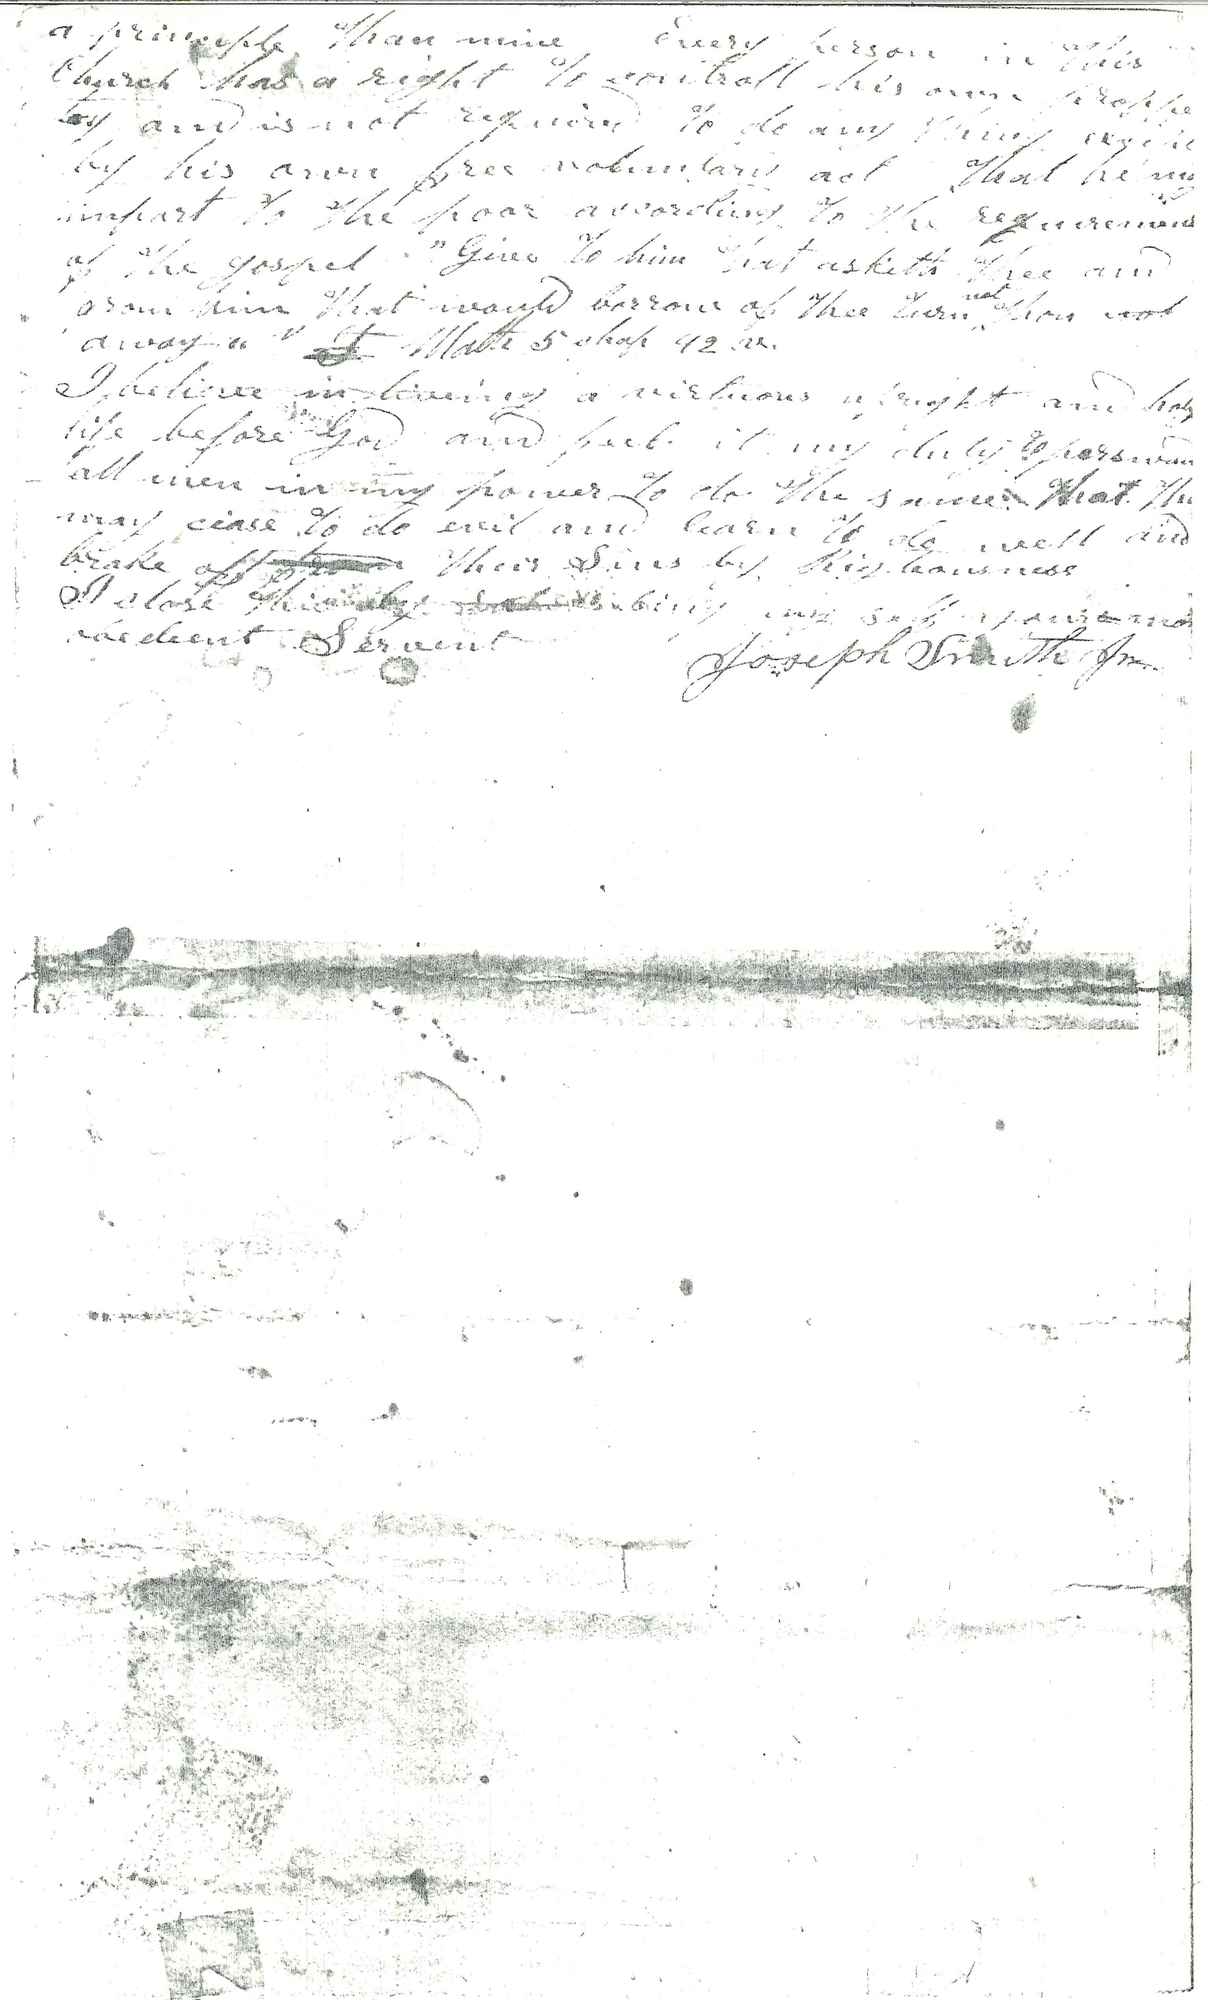 a principle than mine Every person in this
Church has a right to controll his own proppe
ty and is not required to do any thing except
by his own free voluntary act that he may
impart to the poor according to the requirements
of the gospel "Give to him that asketh thee and
from him that would borrow of thee turn not thou not
away" Math 5 chap 42 v.
I believe in liveing a virtuous upright and holy
life before God and feel it my duty to perswade
all men in my power to do the same that the
may cease to do evil and learn to do well and
brake off their Sins by Righteousness
I close this by subscribing my self your mos
obedient Servent
Joseph Smith Jr.